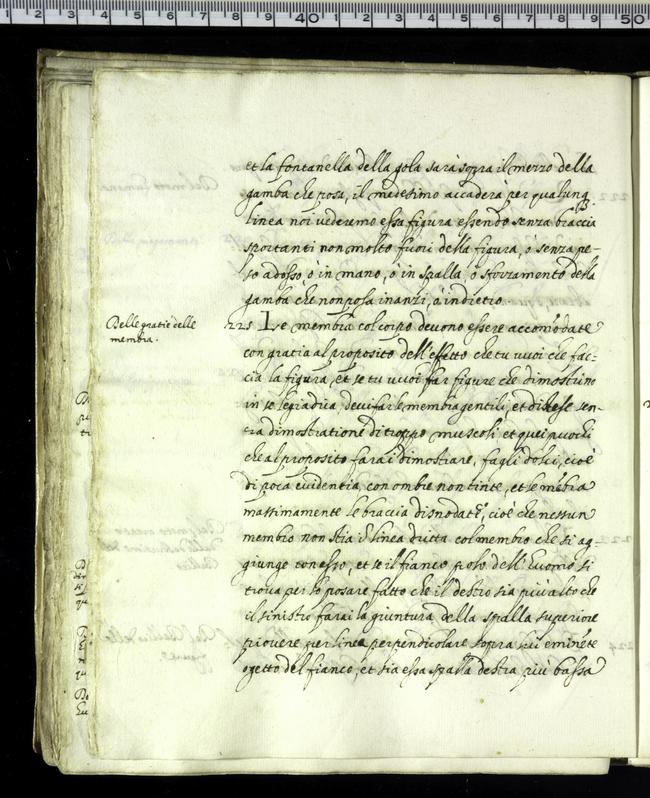 et la fontanella della gola sarà sopra il mezzo della
gamba che posa, il medesimo accaderà per qualunq.
linea noi vederemo essa figura essendo senza braccia
sportanti non molto fuori della figura, ò senza pe-
so adosso, ò in mano, ò in spalla, ò sforzamento della
gamba che non posa inanzi, ò indietro
Belle gratie delle
membra.
225 Le membra col corpo devono essere accomodate
con gratia al proposito dell'effetto che tu vuoi che fac-
cia la figura, et se tu vuoi far figure che dimostrino
in se legiadria, devi far le membra gentili, et distese sen-
za dimostratione di troppo muscoli, et quei puochi
che al proposito farai dimostrare, fagli dolci, cioè
di poca evidentia, con ombre non tinte, et le mẽbra
massimamente le braccia disnodate, cioè che nessun
membro non stia ĩ linea dritta col membro che si ag-
giunge con esso, et se il fianco polo dell'huomo si
trova per lo posare fatto che il destro sia più alto che
il sinistro farai la giuntura della spalla superiore
piovere per linea perpendicolare sopra il più eminẽte
ogetto del fianco, et sia essa spalla destra più bassa